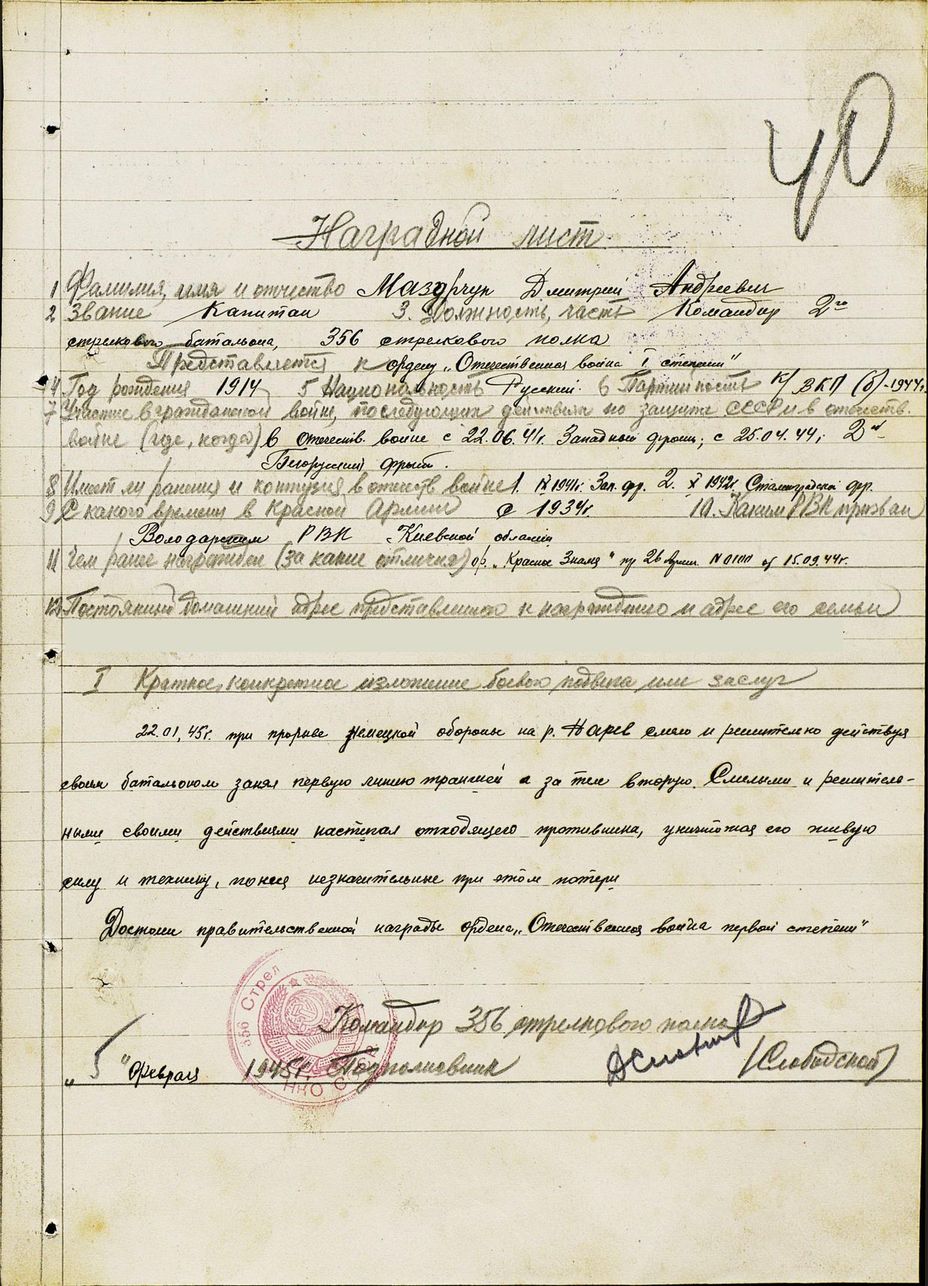 40
Наградной лист
1 Фамилия, имя и отчество Мазурчук Дмитрий Андреевич
2 Звание Капитан 3. Должность, часть Командир 2го
стрелкового батальона, 356 стрелкового полка
Представляется к ордену „Отечественная война I степени"
4 Год рождения 1914 5 Национальность Русский 6 Партийность к/ ВКП (б) - 1944г.
7 Участие в гражданской войне, последующих действиях по защите СССР и в отечеств.
войне (где, когда) в отечеств. войне с 22.06.41г. Западный фронт, с 25.04.44г. 2й
Белорусский фронт.
8 Имеет ли ранения и контузия в отечеств войне 1. IX 1941г. Зап. фр. 2. X 1942г. Сталинградск. фр.
9 С какого времени в Красной Армии с 1934г 10. Каким РВК призван
Володарским РВК Киевской области
11 Чем ранее награжден (за какие отличия) ор. „Красное Знамя" пр 26 № 0100 от 15.09.44г.
12 Постоянный домашний адрес представленного к награждению и адрес его семьи
I Краткое, конкретное изложение боевого подвига или заслуг
22.01.45г. при прорыве немецкой обороны на р. Нарев смело и решительно действуя
своим батальоном занял первую линию траншей а за тем вторую. Смелыми и решитель-
ными своими действиями наступал отходящего противника, уничтожая его живую
силу и технику, понеся незначительные при этом потери
Достоин правительственной награды ордена „Отечественная война первой степени"
356 Стрел
НКО СССР
Командир 356 стрелкового полка
„5" Февраля 1945г. Подполковник (Слободской)